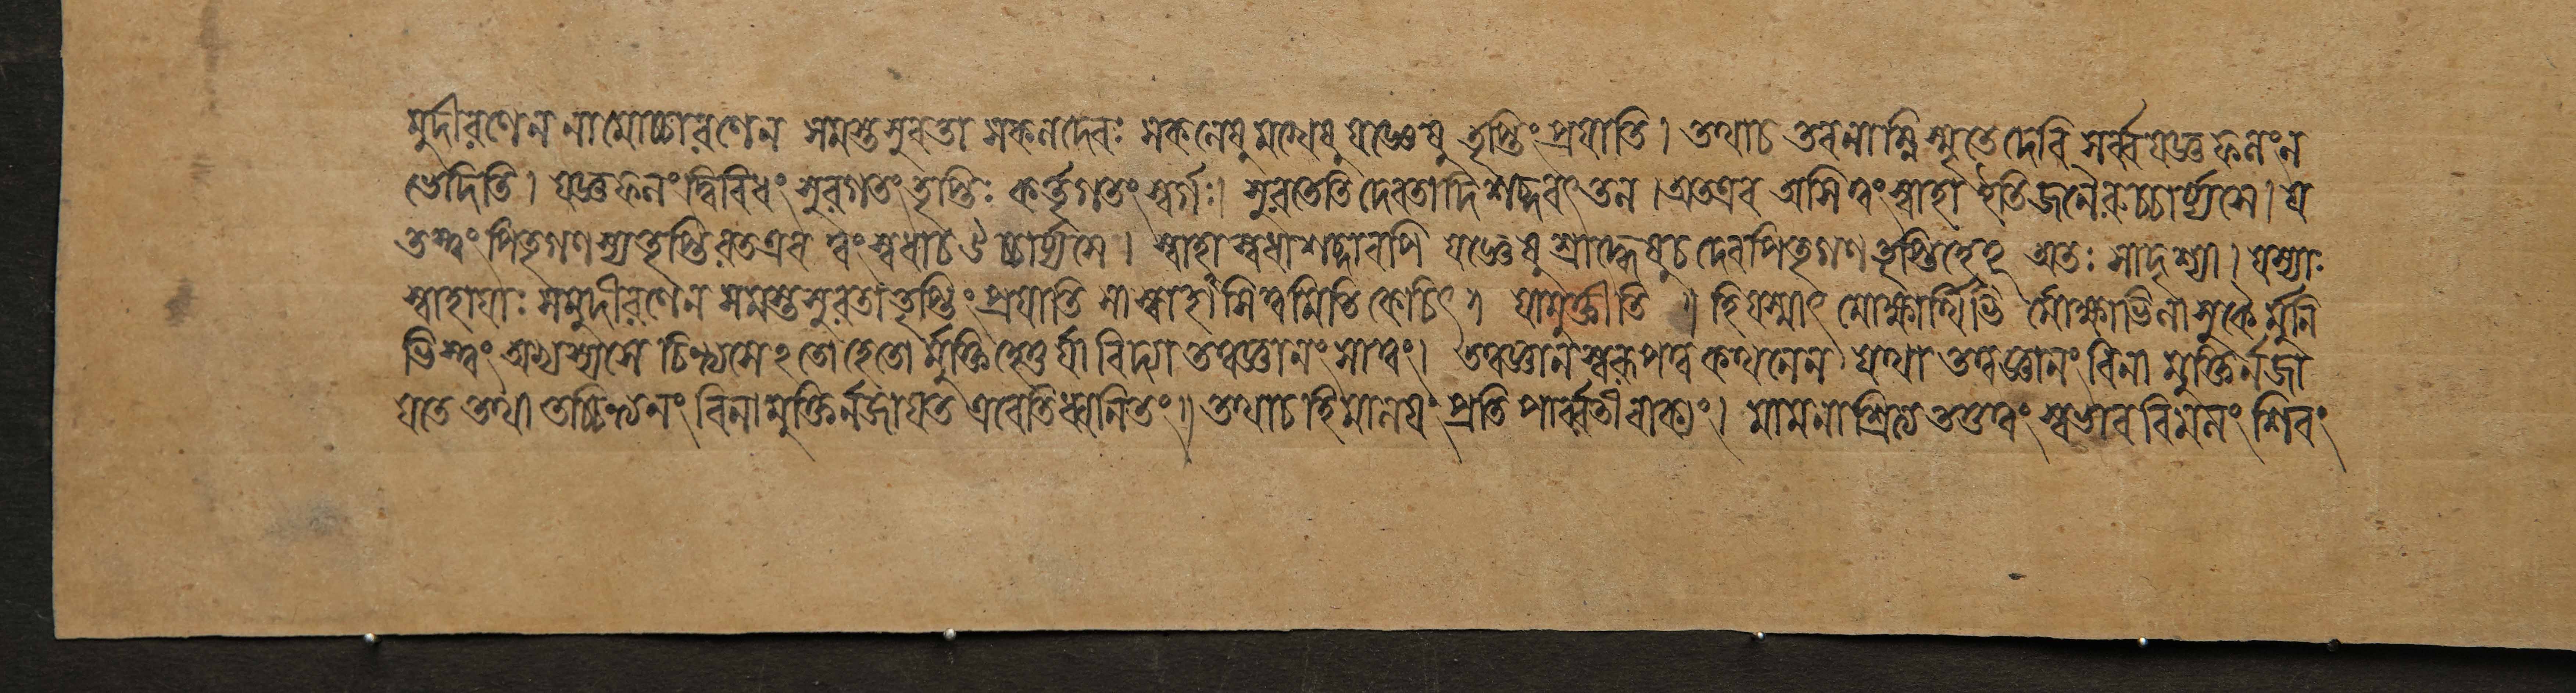 মুদীরণেন নামোচ্চারণেন সমস্তসুরতা সকলদেবঃ সকলেষু মখেষু যজ্ঞেষু তৃপ্তিং প্রযাতি। তথাচ তবনাম্নি স্মৃতে দেবি সর্ব্বযজ্ঞফলং ল
ভেদিতি। যজ্ঞফলং দ্বিবিধং সুরগতং তৃপ্তিঃ কর্ত্তৃগতং স্বর্গঃ। সুরতেতি দেবতাদি শব্দবৎ তল। অতএব অসি ত্বং স্বাহা ইতি জনৈরুচ্চার্য্যসে। য
তস্ত্বং পিতৃগণস্য তৃপ্তিরতএব ত্বং স্বধাচ উচ্চার্য্যসে। স্বাহা স্বধা শব্দাবপি যজ্ঞেষু শ্রাদ্ধেষুচ দেবপিতৃগণ তৃপ্তিহেতূ অতঃ সাদৃশ্যা। যস্যাঃ
স্বাহাযাঃ সমুদীরণেন সমস্তসুরতা তৃপ্তিং প্রযাতি সা স্বাহাসি ত্বমিতি কেচিৎ॥ যামুক্তীতি ॥ হি যস্মাৎ মোক্ষার্থিভি র্মোক্ষাভিলাসুকৈ র্মুনি
ভিস্ত্বং অভ্যস্যসে চিন্ত্যসেঽতো হেতো র্মুক্তিহেতু র্যা বিদ্যা তত্বজ্ঞানং সা ত্বং। তত্বজ্ঞানস্বরূপত্ব কথনেন যথা তত্বজ্ঞানং বিনা মুক্তির্নজা
যতে তথা তচ্চিন্তনং বিনা মুক্তির্নজাযত এবেতি ধ্বনিতং॥ তথাচ হিমালযং প্রতি পার্ব্বতী বাক্যং। মামনাশ্রিত্য তত্তত্বং স্বভাব বিমলং শিবং